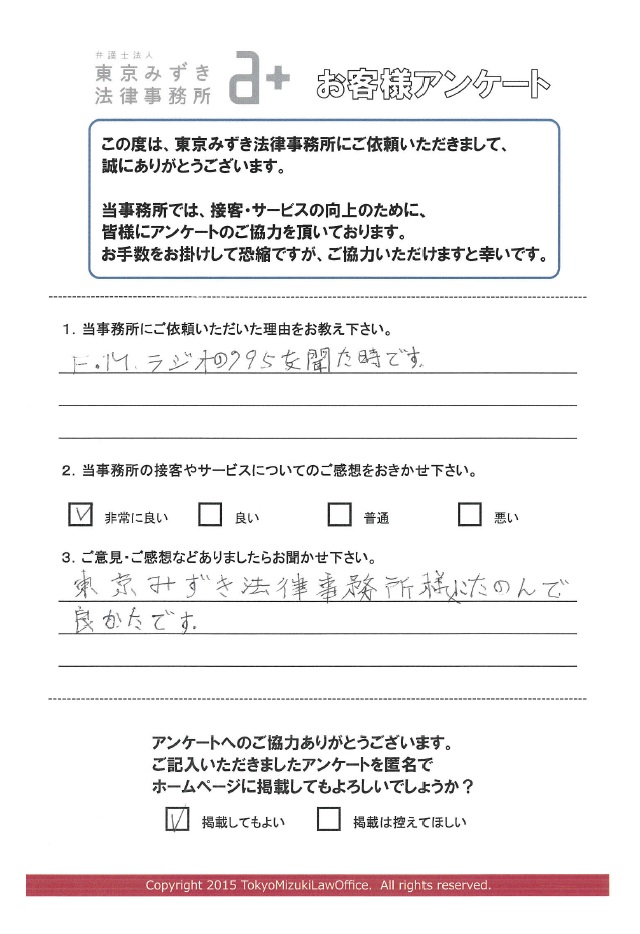 弁護士法人
東京みずき
法律事務所
a+
お客様アンケート
この度は、東京みずき法律事務所にご依頼いただきまして、
誠にありがとうございます。
当事務所では、接客・サービスの向上のために、
皆様にアンケートのご協力を頂いております。
お手数をお掛けして恐縮ですが、ご協力いただけますと幸いです。
1. 当事務所にご依頼いただいた理由をお教え下さい。
F.M.ラジオの795を聞た時です。
2. 当事務所の接客やサービスについてのご感想をおきかせ下さい。
非常に良い 良い 普通 悪い
3. ご意見・ご感想などありましたらお聞かせ下さい。
東京みずき法律事務所様にたのんで
良かたです.
アンケートへのご協力ありがとうございます。
ご記入いただきましたアンケートを匿名で
ホームページに掲載してもよろしいでしょうか？
掲載してもよい 掲載は控えてほしい
Copyright 2015 TokyoMizukiLawOffice. All rights reserved.